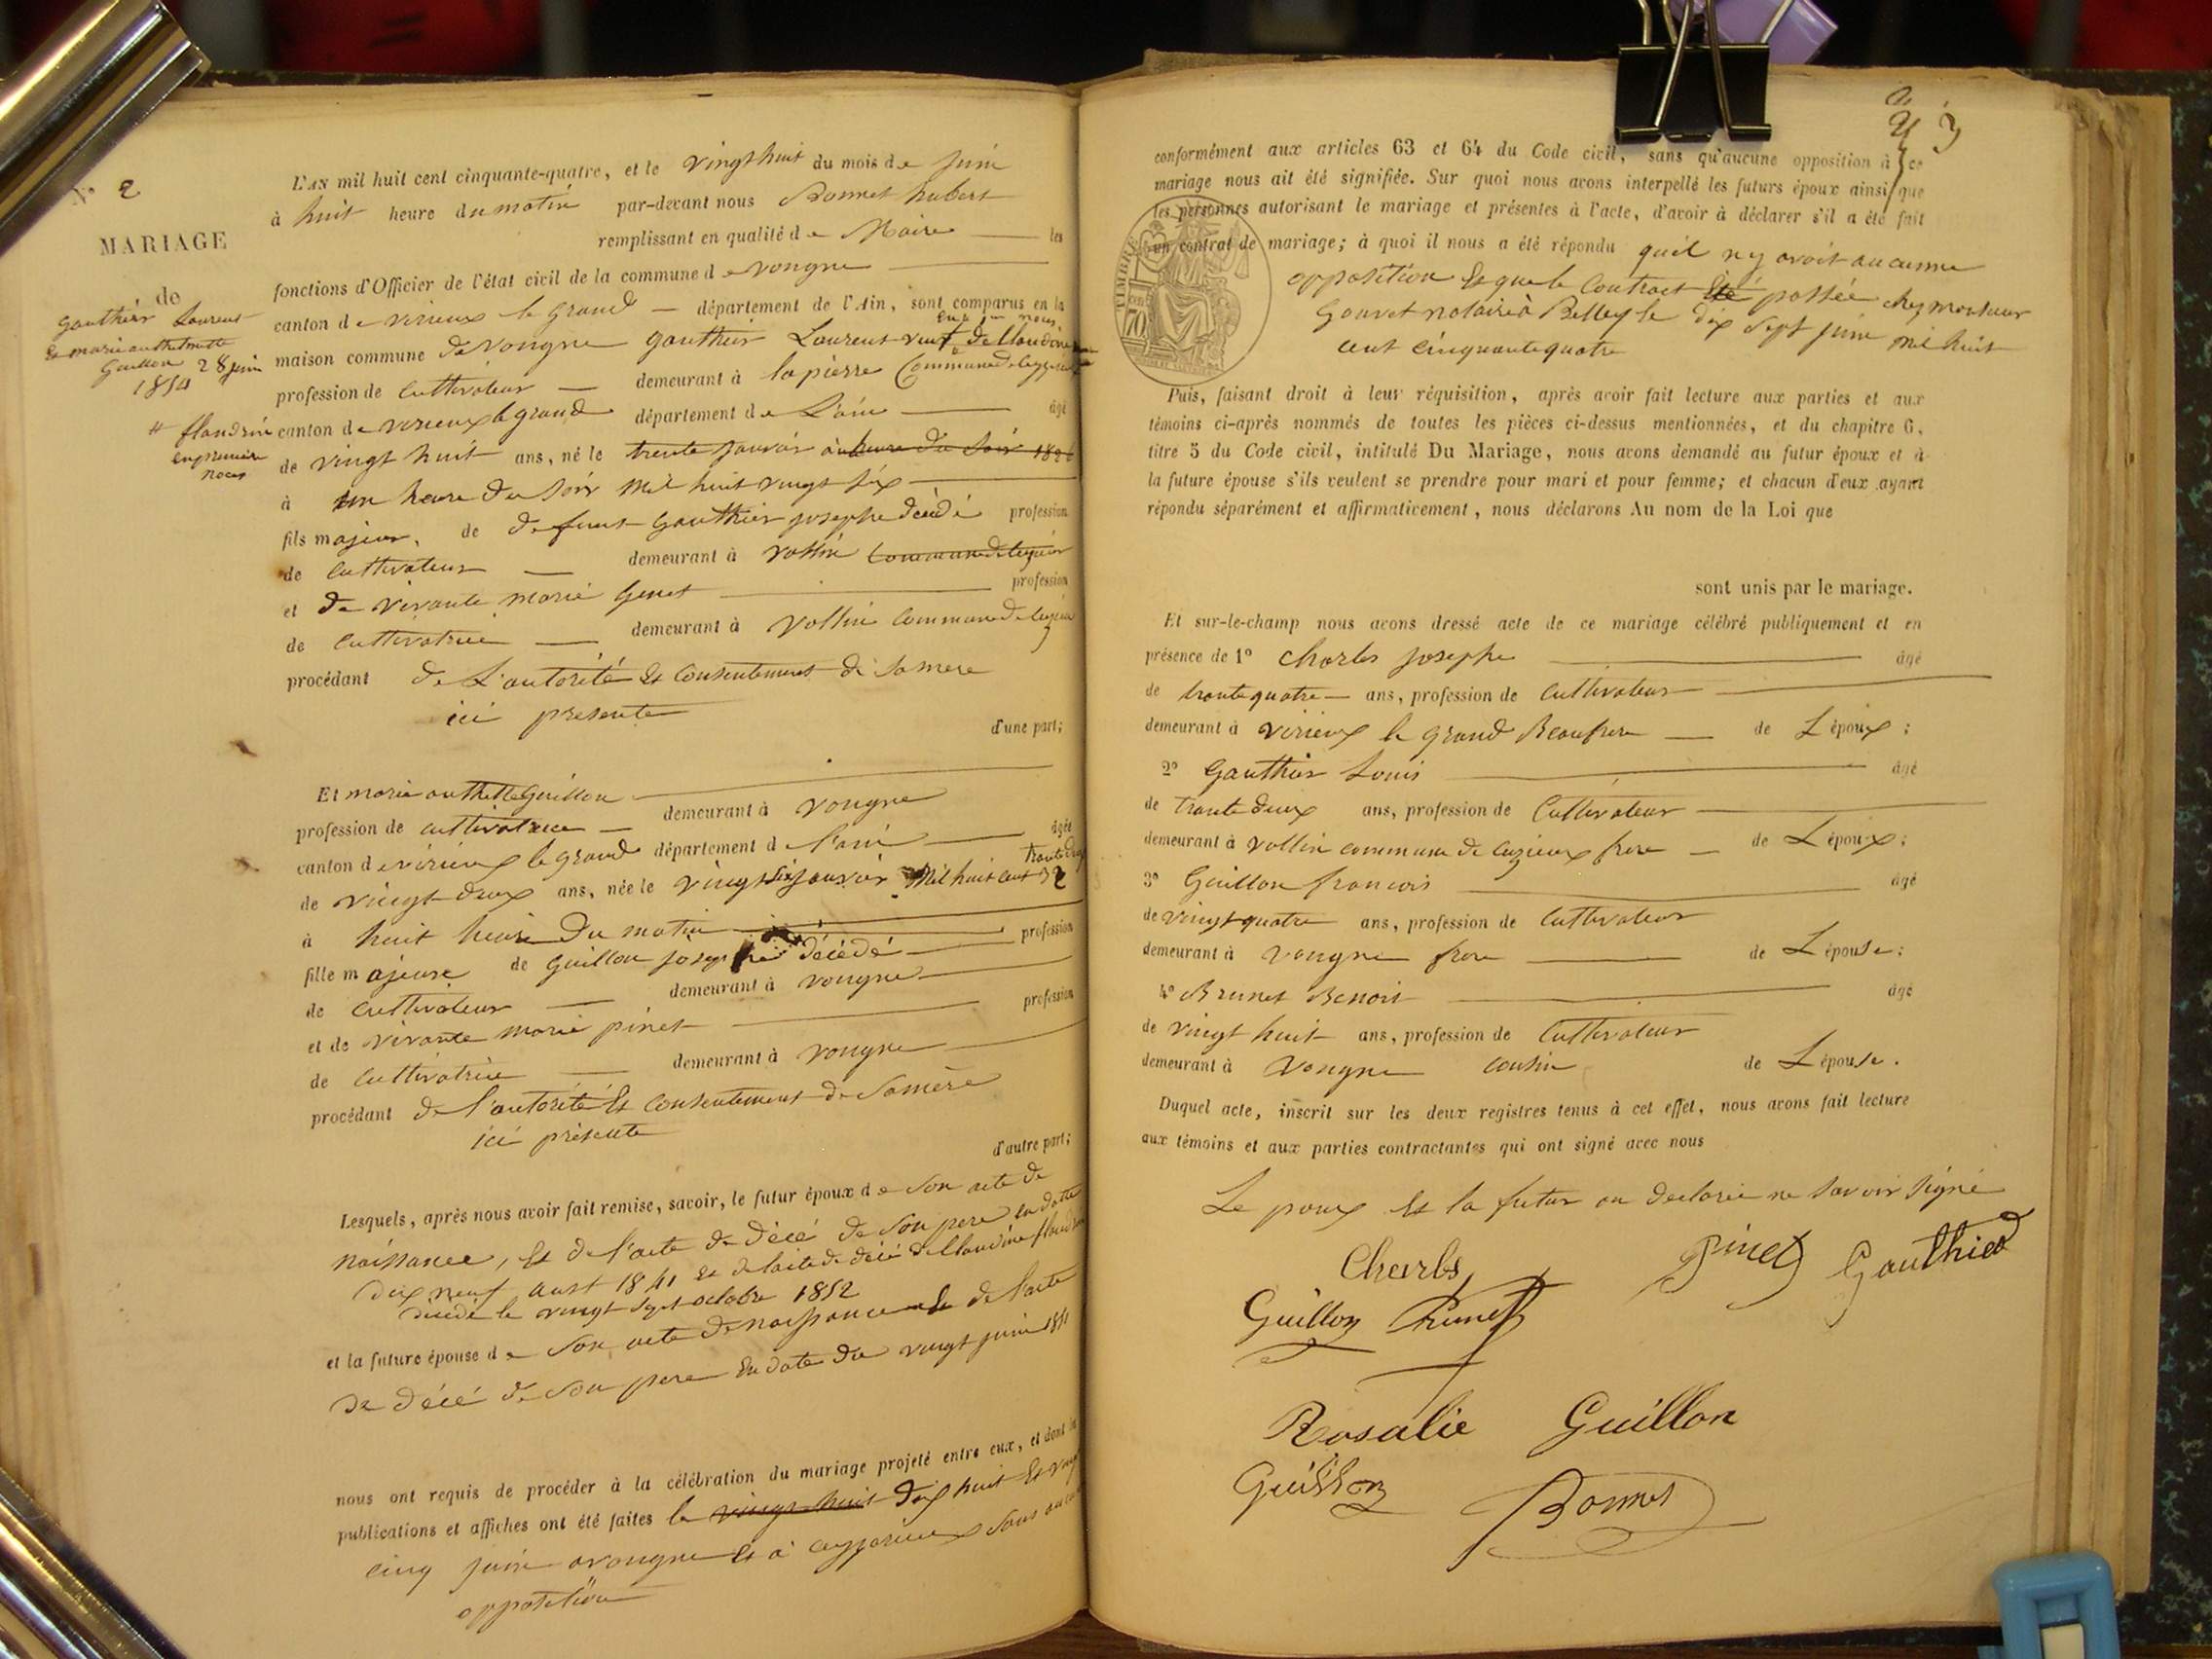 N° 2
MARIAGE
de
Gauthier Laurent
et marie anthelmette
Guillon 28 juin
1854
# flandrin
en premiere
noces
L'AN mil huit cent cinquante-quatre, et le vingt huit du mois de juin
à huit heure du matin par-devant nous Bonnet hubert
remplissant en qualité de Maire les
fonctions d'Officier de l'état civil de la commune de vongne
canton de virieux le grand département de l'Ain, sont comparus en la
maison commune de vongne gauthier Laurent veuf de Claudine
profession de cultivateur demeurant à la pierre Commune de
canton de virieux le grand département de L'ain âgé
de vingt huit ans, né le trente janvier à heure du soir 1826
à un heure du soir mil huit vingt six
fils majeur, de defunt Gauthier josephe décédé profession
de cultivateur demeurant à vollin Commune de
et de vivante marie Genet profession
de cultivatrice demeurant à vollin commune de
procédant de L'autorité et consentement de sa mere
ici presente
d'une part;
Et marie anthelle Guillon
profession de cultivatrice demeurant à vongne
canton de virieux le grand département de l'ain âgée
de vingt deux ans, née le vingt six janvier Mil huit cent 32
à huit heure du matin
fille majeure de Guillon josephe décédé profession
de cultivateur demeurant à vongne
et de vivante marie pinet profession
de cultivatrice demeurant à vongne
procédant de l'autorité et consentement de sa mère
ici présente
d'autre part;
Lesquels, après nous avoir fait remise, savoir, le futur époux de son acte de
naissance, et de l'acte de décé de son pere en datte
dix neuf aust 1841 et de l'acte de décé de Claudine flandrin
décédé le vingt sept octobre 1852
et la future épouse de son acte de naissance et de l'acte
de décé de son pere en date du vingt juin
nous ont requis de procéder à la célébration du mariage projeté entre eux, et dont les
publications et affiches ont été faites le vingt huit dix huit et vingt
cinq juin a vongne et à ceyzerieux sans aucune
opposition
conformément aux articles 63 et 64 du Code civil, sans qu'aucune opposition à ce
mariage nous ait été signifiée. Sur quoi nous avons interpellé les futurs époux ainsi que
les personnes autorisant le mariage et présentes à l'acte, d'avoir à déclarer s'il a été fait
un contrat de mariage; à quoi il nous a été répondu quil n y avoit aucunne
opposition et que le Contract été passée chez monsieur
Gouvet notaire à Belley le dix sept juin mil huit
cent cinquante quatre
TIMBRE
70
Puis, faisant droit à leur réquisition, après avoir fait lecture aux parties et aux
témoins ci-après nommés de toutes les pièces ci-dessus mentionnées, et du chapitre 6,
titre 5 du Code civil, intitulé Du Mariage, nous avons demandé au futur époux et à
la future épouse s'ils veulent se prendre pour mari et pour femme; et chacun d'eux ayant
répondu séparément et affirmativement, nous déclarons Au nom de la Loi que
sont unis par le mariage.
Et sur-le-champ nous avons dressé acte de ce mariage célébré publiquement et en
présence de 1° Charles josephe âgé
de trante quatre ans, profession de cultivateur
demeurant à virieux le grand Beaufrere de L époux;
2° Gauthier Louis âgé
de trante deux ans, profession de Cultivateur
demeurant à vollin commune de cuzieux frere de L époux;
3° Guillon francois âgé
de vingt quatre ans, profession de Cultivateur
demeurant à vongne frere de L épouse;
4° Brunet Benoit âgé
de vingt huit ans, profession de Cultivateur
demeurant à vongne cousin de L épouse.
Duquel acte, inscrit sur les deux registres tenus à cet effet, nous avons fait lecture
aux témoins et aux parties contractantes qui ont signé avec nous
Le poux et la futur on declarée ne savoir signé
Charles Pinet Gauthier
Guillon Brunet
Rosalie Guillon
Guillon Bonnet